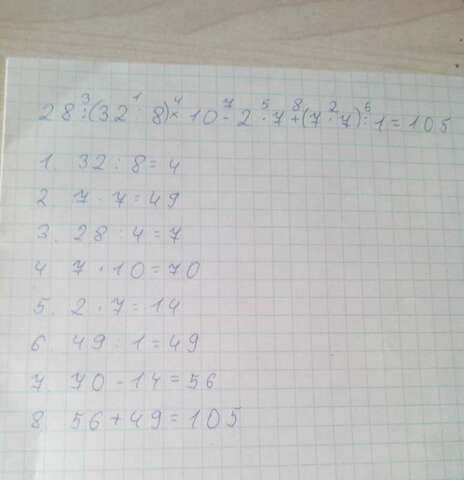 28 : (32 : 8) × 10 - 2 · 7 + (7 · 7) : 1 = 105
1. 32 : 8 = 4
2. 7 · 7 = 49
3. 28 : 4 = 7
4. 7 · 10 = 70
5. 2 · 7 = 14
6. 49 : 1 = 49
7. 70 - 14 = 56
8. 56 + 49 = 105